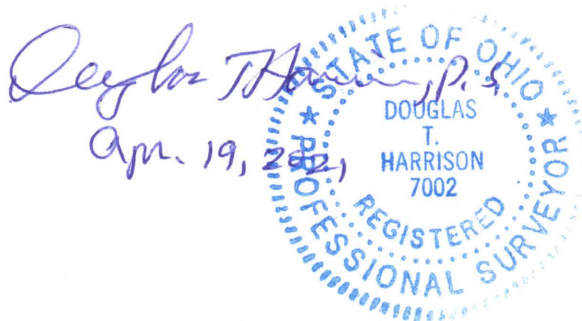 Douglas T. Harrison, P.S.
Apr. 19, 2021
STATE OF OHIO
DOUGLAS
T.
HARRISON
7002
REGISTERED
PROFESSIONAL SURVEYOR